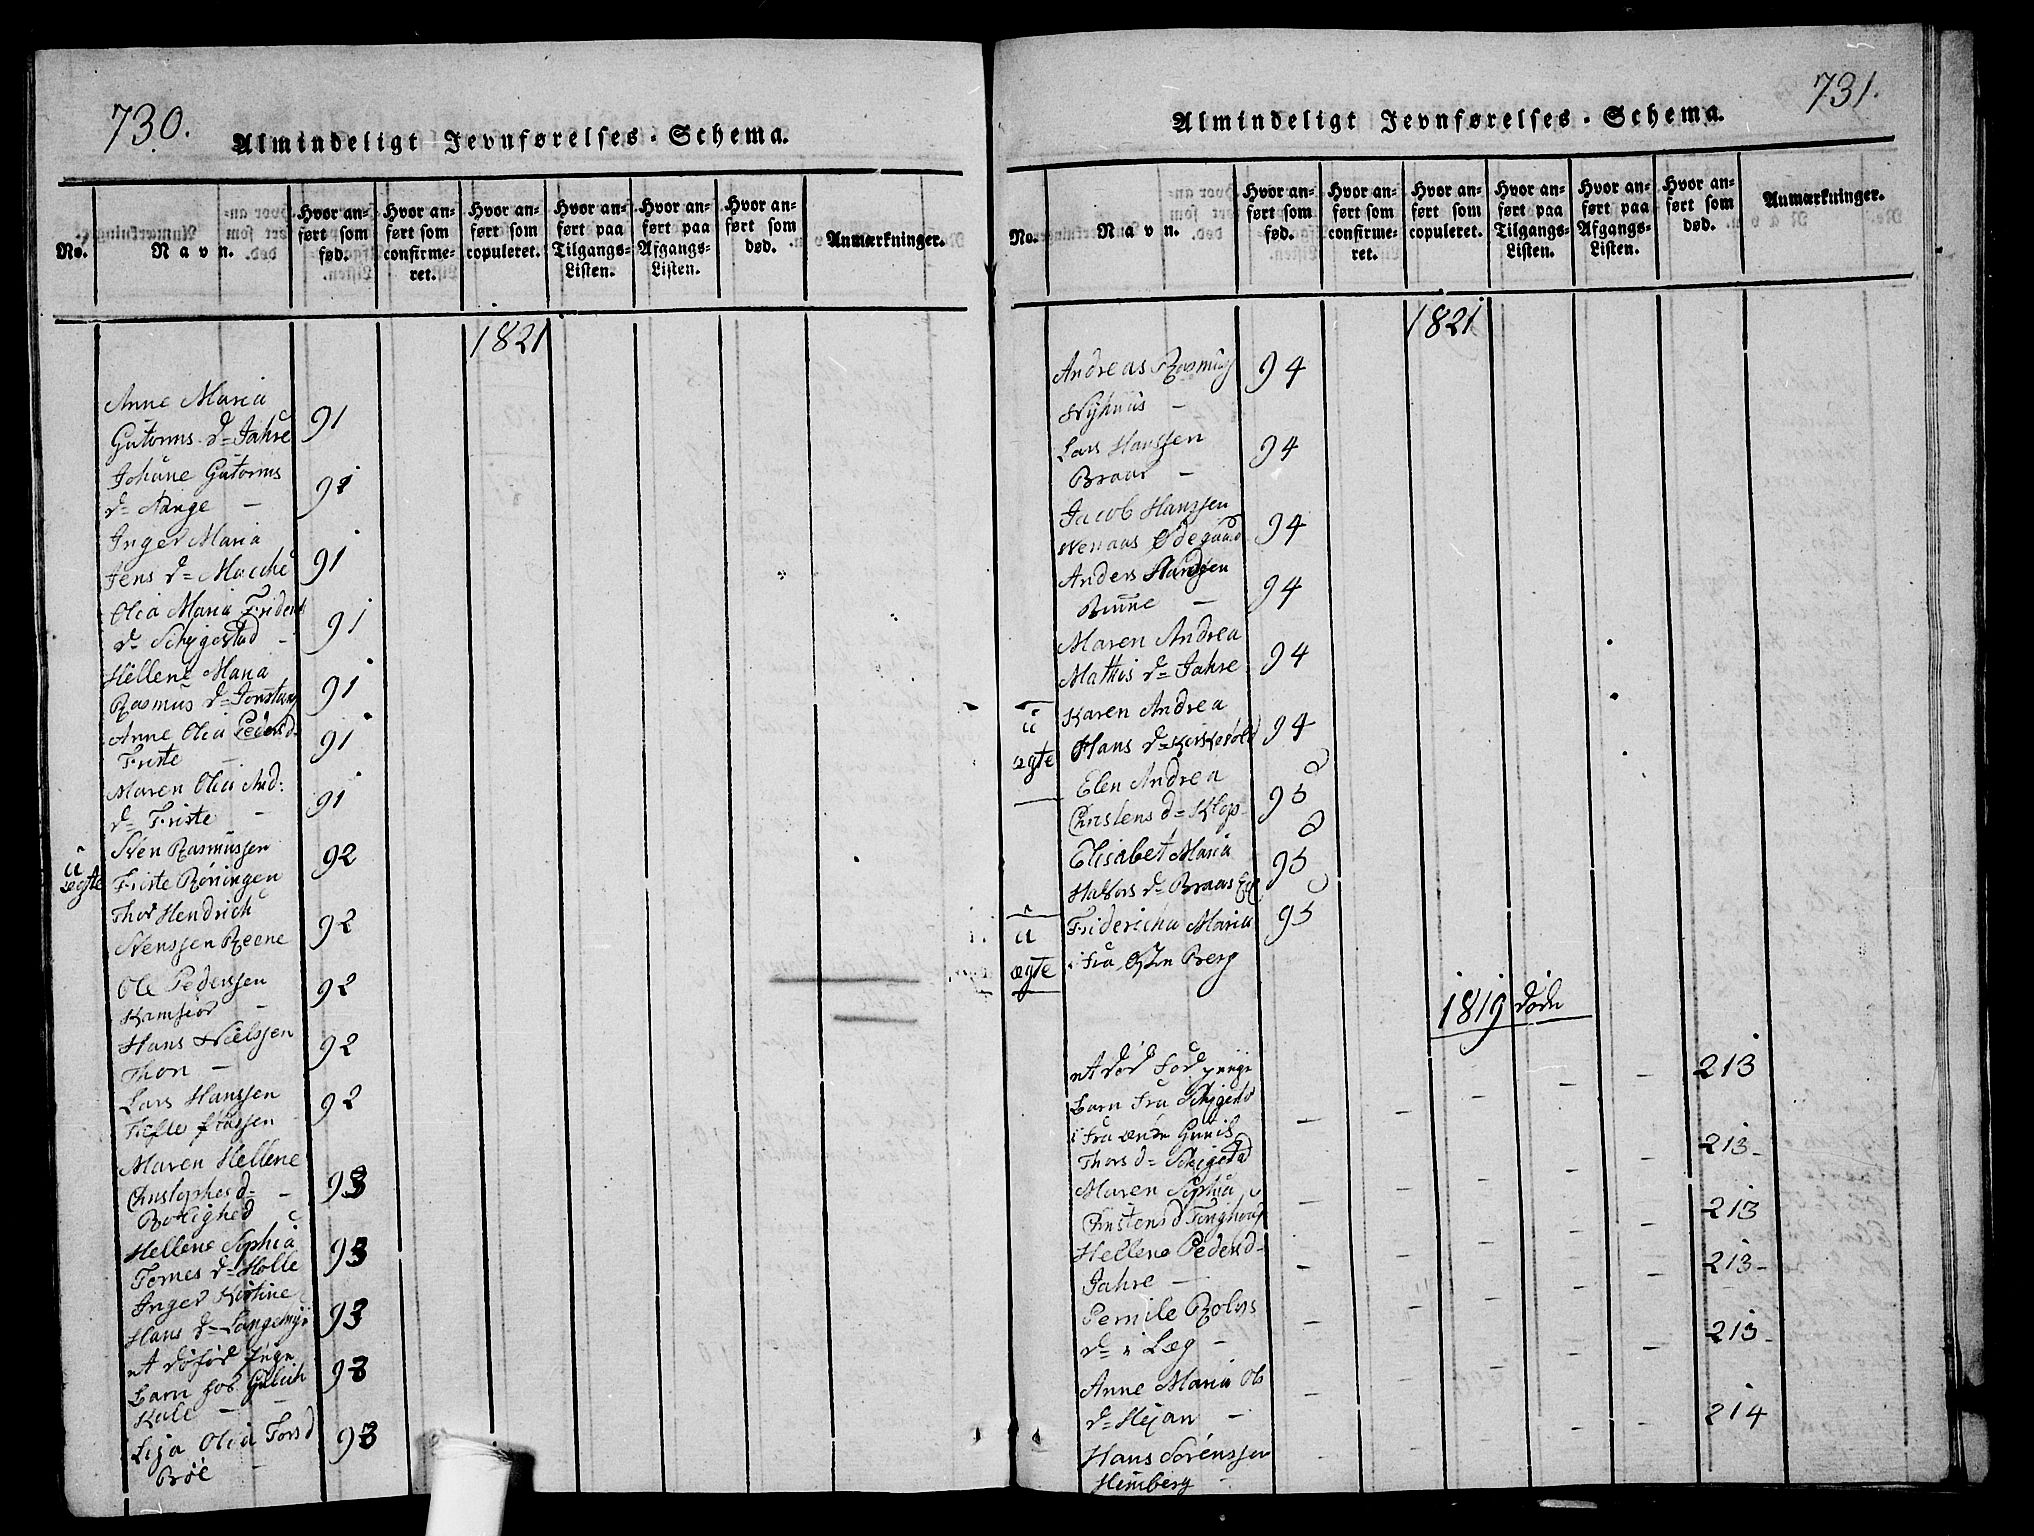 730.
Almindeligt Jevnførelses-Schema.
No.
Navn.
Hvor anført som fød.
Hvor anført som confirmeret.
Hvor anført som copuleret.
Hvor anført paa Tilgangs-Listen.
Hvor anført paa Afgangs-Listen.
Hvor anført som død.
Anmærkninger.
1821
Anne Maria
Gutorms d= Jahre 91
Johane Gutorms
d= Nange - 91
Inger Maria
Jens d= Macche 91
Olia Maria
d= Schygestad - 91
Hellene Maria
Rasmus d= 91
Anne Olia Pedersd=
Friste - 91
Maren Olia And:
d= Friste - 91
u
ægte
Sven Rasmussen
Friste Røningen 92
Thor Hendrich
Svenssen Reene 92
Ole Pedersen
Kamfiør - 92
Hans Nielssen
Thon - 92
Lars Hanssen
92
Maren Hellene
Christophersd= -
Bolighed 93
Hellene Sophia
Tornes d= Holle 93
Inger Kirstine
Hans d= Langemyr 93
Barn for
Kale - - 93
Lisa Olia Torsd
Brøe - 93
731.
Almindeligt Jevnførelses-Schema.
No.
Navn.
Hvor anført som fød.
Hvor anført som confirmeret.
Hvor anført som copuleret.
Hvor anført paa Tilgangs-Listen.
Hvor anført paa Afgangs-Listen.
Hvor anført som død.
Anmærkninger.
1821
Andreas Rasmus
Nyhuus - 94
Lars Hanssen
Braar - 94
Jacob Hanssen
Ødegaard 94
Anders Hanssen
- 94
Maren Andrea
Mathis d= Jahre 94
u
ægte
Karen Andrea
Hans d= 94
Elen Andrea
Christens d= Klop 95
Elisabet Maria
d= Braas 95
u
ægte
Fridericha Maria 95
i Fra Berg
1819 døde
Barn Fra 213
i Fra
Thors d= 213-
Maren Sophia
Christens d 213
Hellene Pedersd=
Jahre - 213-
Pernile
d= i Læg - 213-
Anne Maria
d= Hejan - 214
Hans Sørenssen
Heimberg -